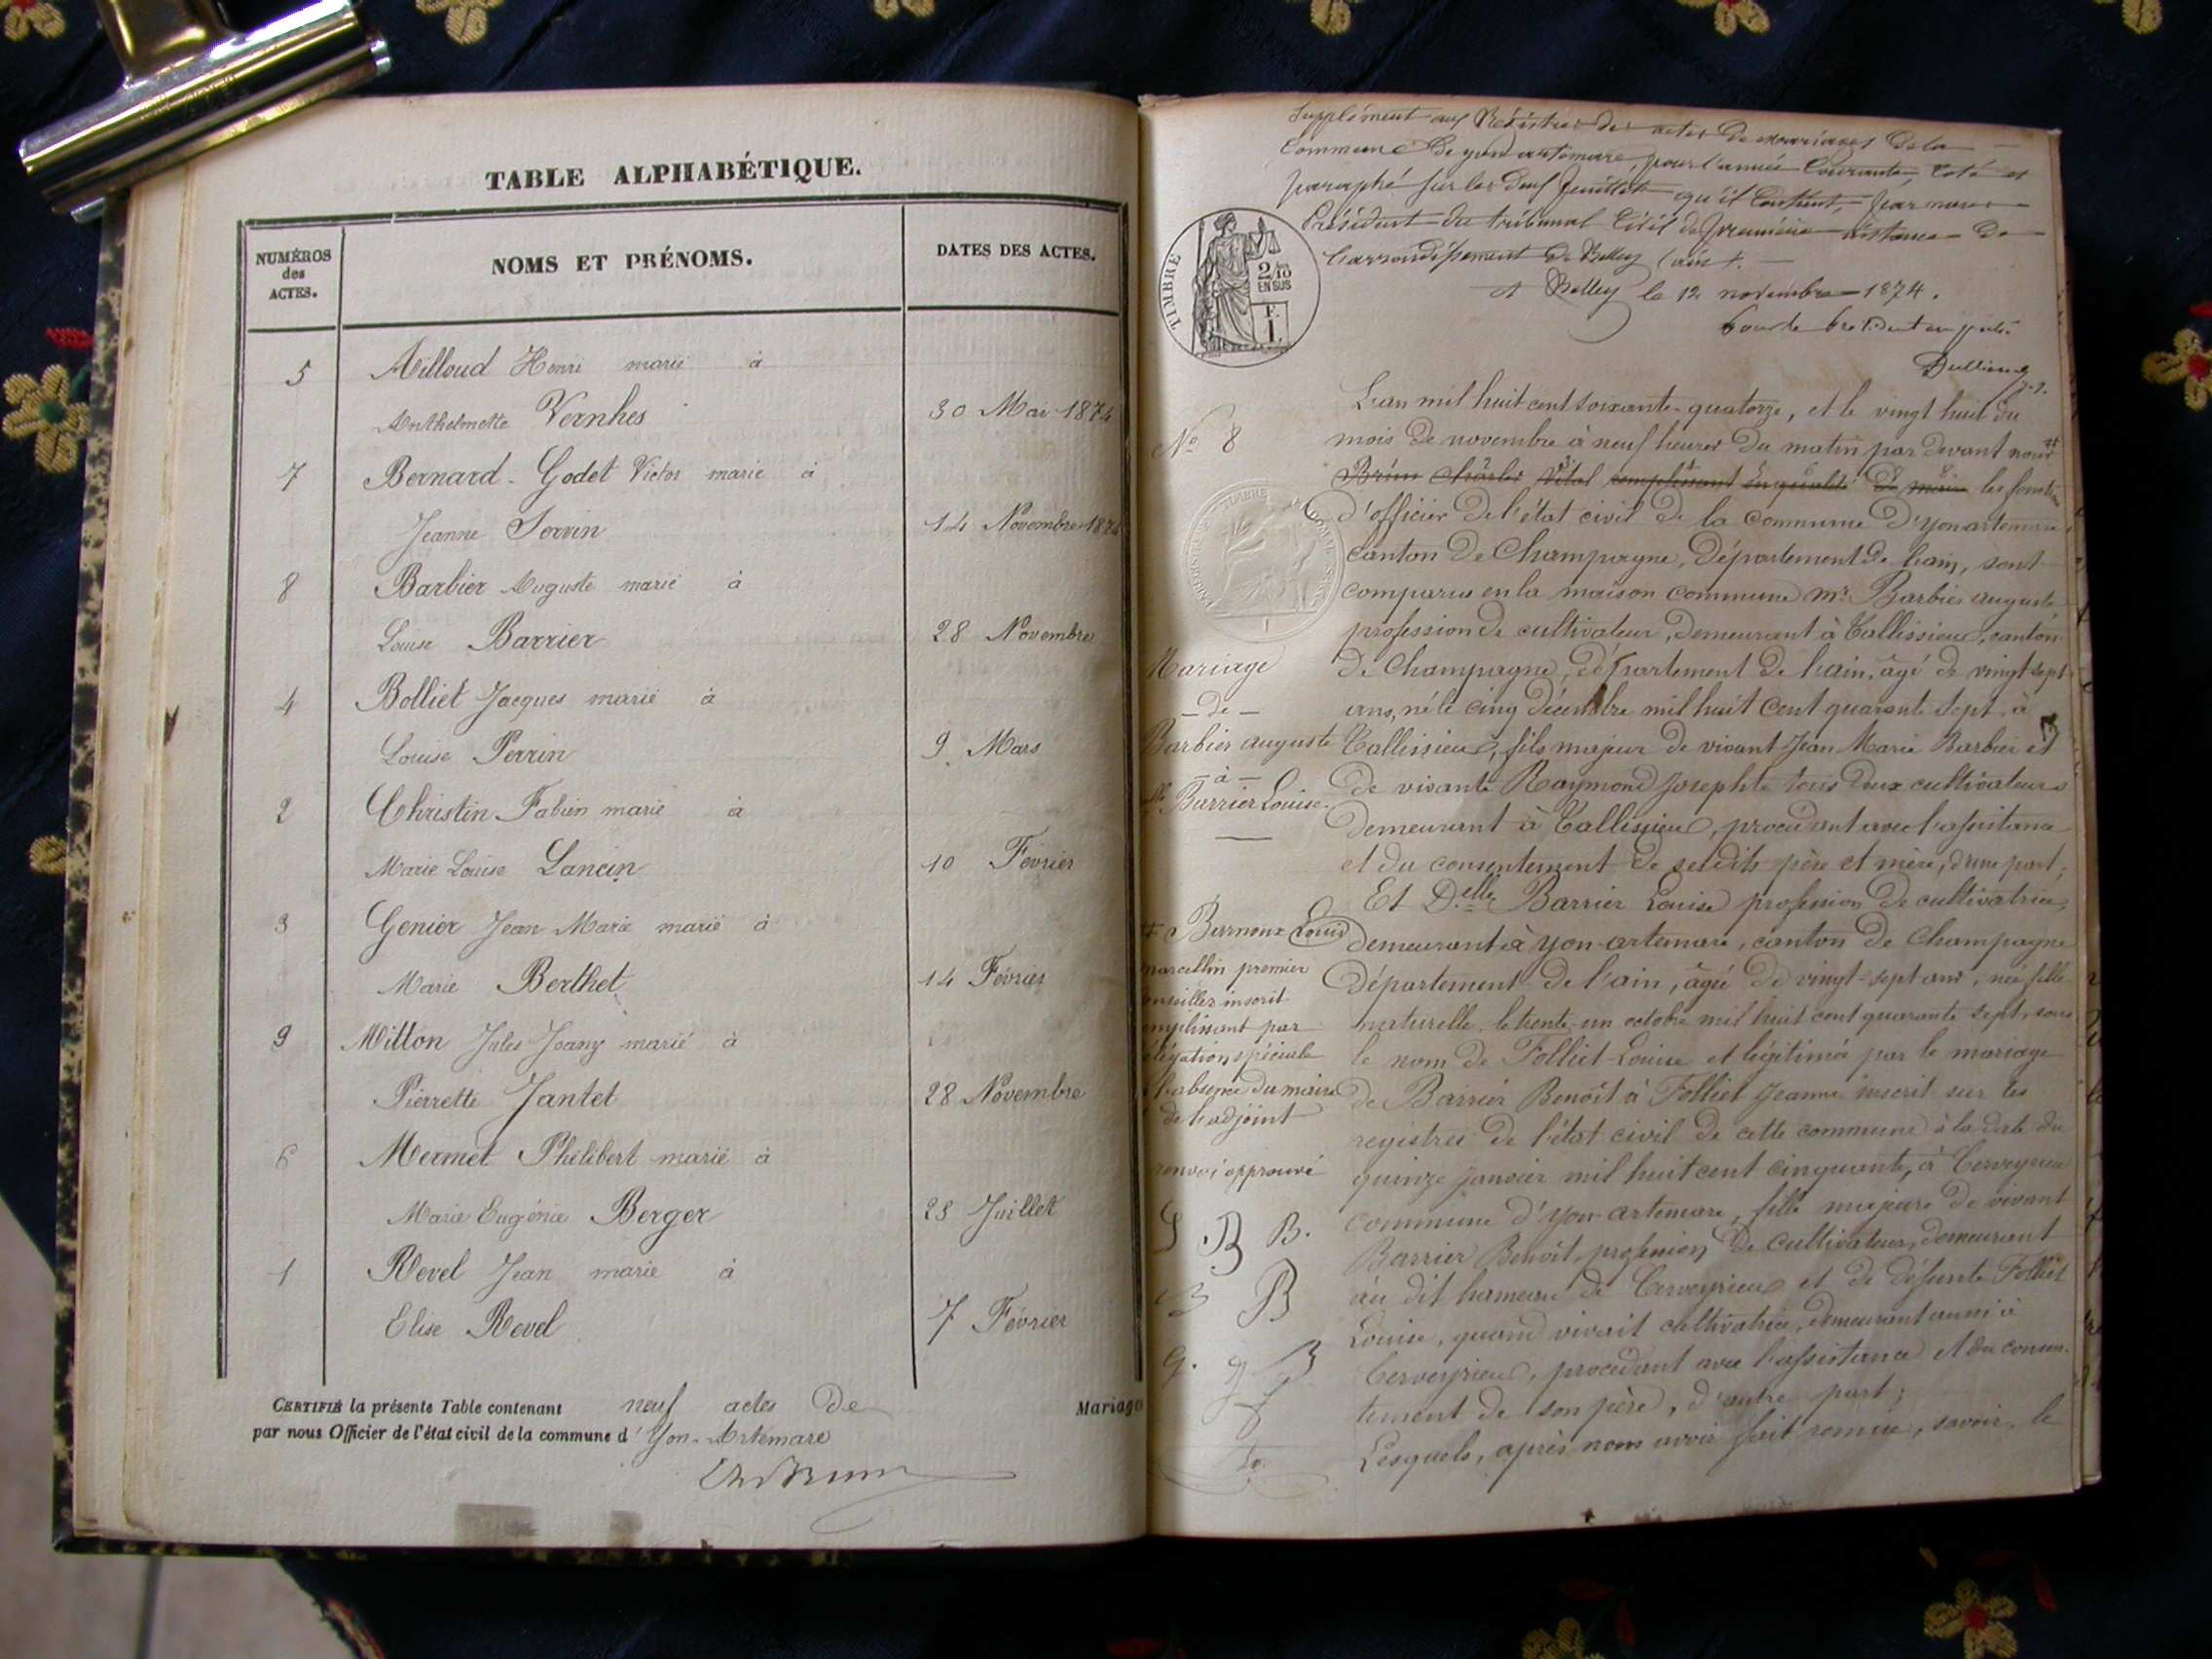 TABLE ALPHABÉTIQUE.
NUMÉROS
des
ACTES.
NOMS ET PRÉNOMS.
DATES DES ACTES.
5 Ailloud Henri marié à
Anthelmette Vernhes 30 Mai 1874
7 Bernard-Godet Victor marié à
Jeanne Servin 14 Novembre 1874
8 Barbier Auguste marié à
Louise Barrier 28 Novembre
4 Bolliet Jacques marié à
Louise Perrin 9 Mars
2 Christin Fabien marié à
Marie Louise Lancin 10 Février
3 Genier Jean Marie marié à
Marie Berthet 14 Février
9 Milton Jules Joany marié à
Pierrette Jantet 28 Novembre
6 Mermet Philibert marié à
Marie Eugénie Berger 28 Juillet
1 Revel Jean marié à
Elise Revel 7 Février
CERTIFIÉ la présente Table contenant neuf actes de Mariages
par nous Officier de l'état civil de la commune d'Yon-Artemare
Supplément aux Régistres des actes de mariages de la
Commune de yon artemare, pour l'année Courante, coté et
paraphé sur les deux feuillets qu'il Contient, par nous
Président du tribunal Civil de première instance de
l'arrondissement de Belley (ain).
A Belley le 12 novembre 1874.
Pour le Président empêché
TIMBRE
2/10
EN SUS
F.
1.
No 8
L'an mil huit cent soixante-quatorze, et le vingt huit du
mois de novembre à neuf heures du matin par devant nous
Brun Charles Vital remplissant en qualité de maire les fonctions
d'officier de l'état civil de la commune d'yon artemare
canton de Champagne, département de l'ain, sont
comparus en la maison commune Mr Barbier auguste
profession de cultivateur, demeurant à Tallissieu, canton
de Champagne, département de l'ain, âgé de vingt sept
ans, né le cinq décembre mil huit cent quarante sept à
Tallissieu, fils majeur de vivant Jean Marie Barbier et
de vivante Raymond Josephte tous deux cultivateurs
demeurant à Tallissieu, procédant avec l'assistance
et du consentement de sesdits père et mère, d'une part;
Et Delle Barrier Louise profession de cultivatrice,
demeurant à yon-artemare, canton de Champagne
département de l'ain, âgée de vingt-sept ans, née fille
naturelle, le trente-un octobre mil huit cent quarante sept, sous
le nom de Folliet Louise et légitimée par le mariage
de Barrier Benoît à Folliet Jeanne inscrit sur les
registres de l'état civil de cette commune à la date du
quinze janvier mil huit cent cinquante, à Cerveyrieu
commune d'yon-artemare, fille majeure de vivant
Barrier Benoît, profession de cultivateur, demeurant
au dit hameau de Cerveyrieu et de défunte Folliet
Louise, quand vivait cultivatrice, demeurant aussi à
Cerveyrieu, procédant avec l'assistance et du consen-
tement de son père, d'autre part;
Lesquels, après nous avoir fait remise, savoir, le
Mariage
- de -
Barbier auguste
- à -
Barrier Louise.
Bernoux Louis
marcellin premier
conseiller inscrit
remplissant par
délégation spéciale
l'absence du maire
de l'adjoint
renvoi approuvé
B B.
B B